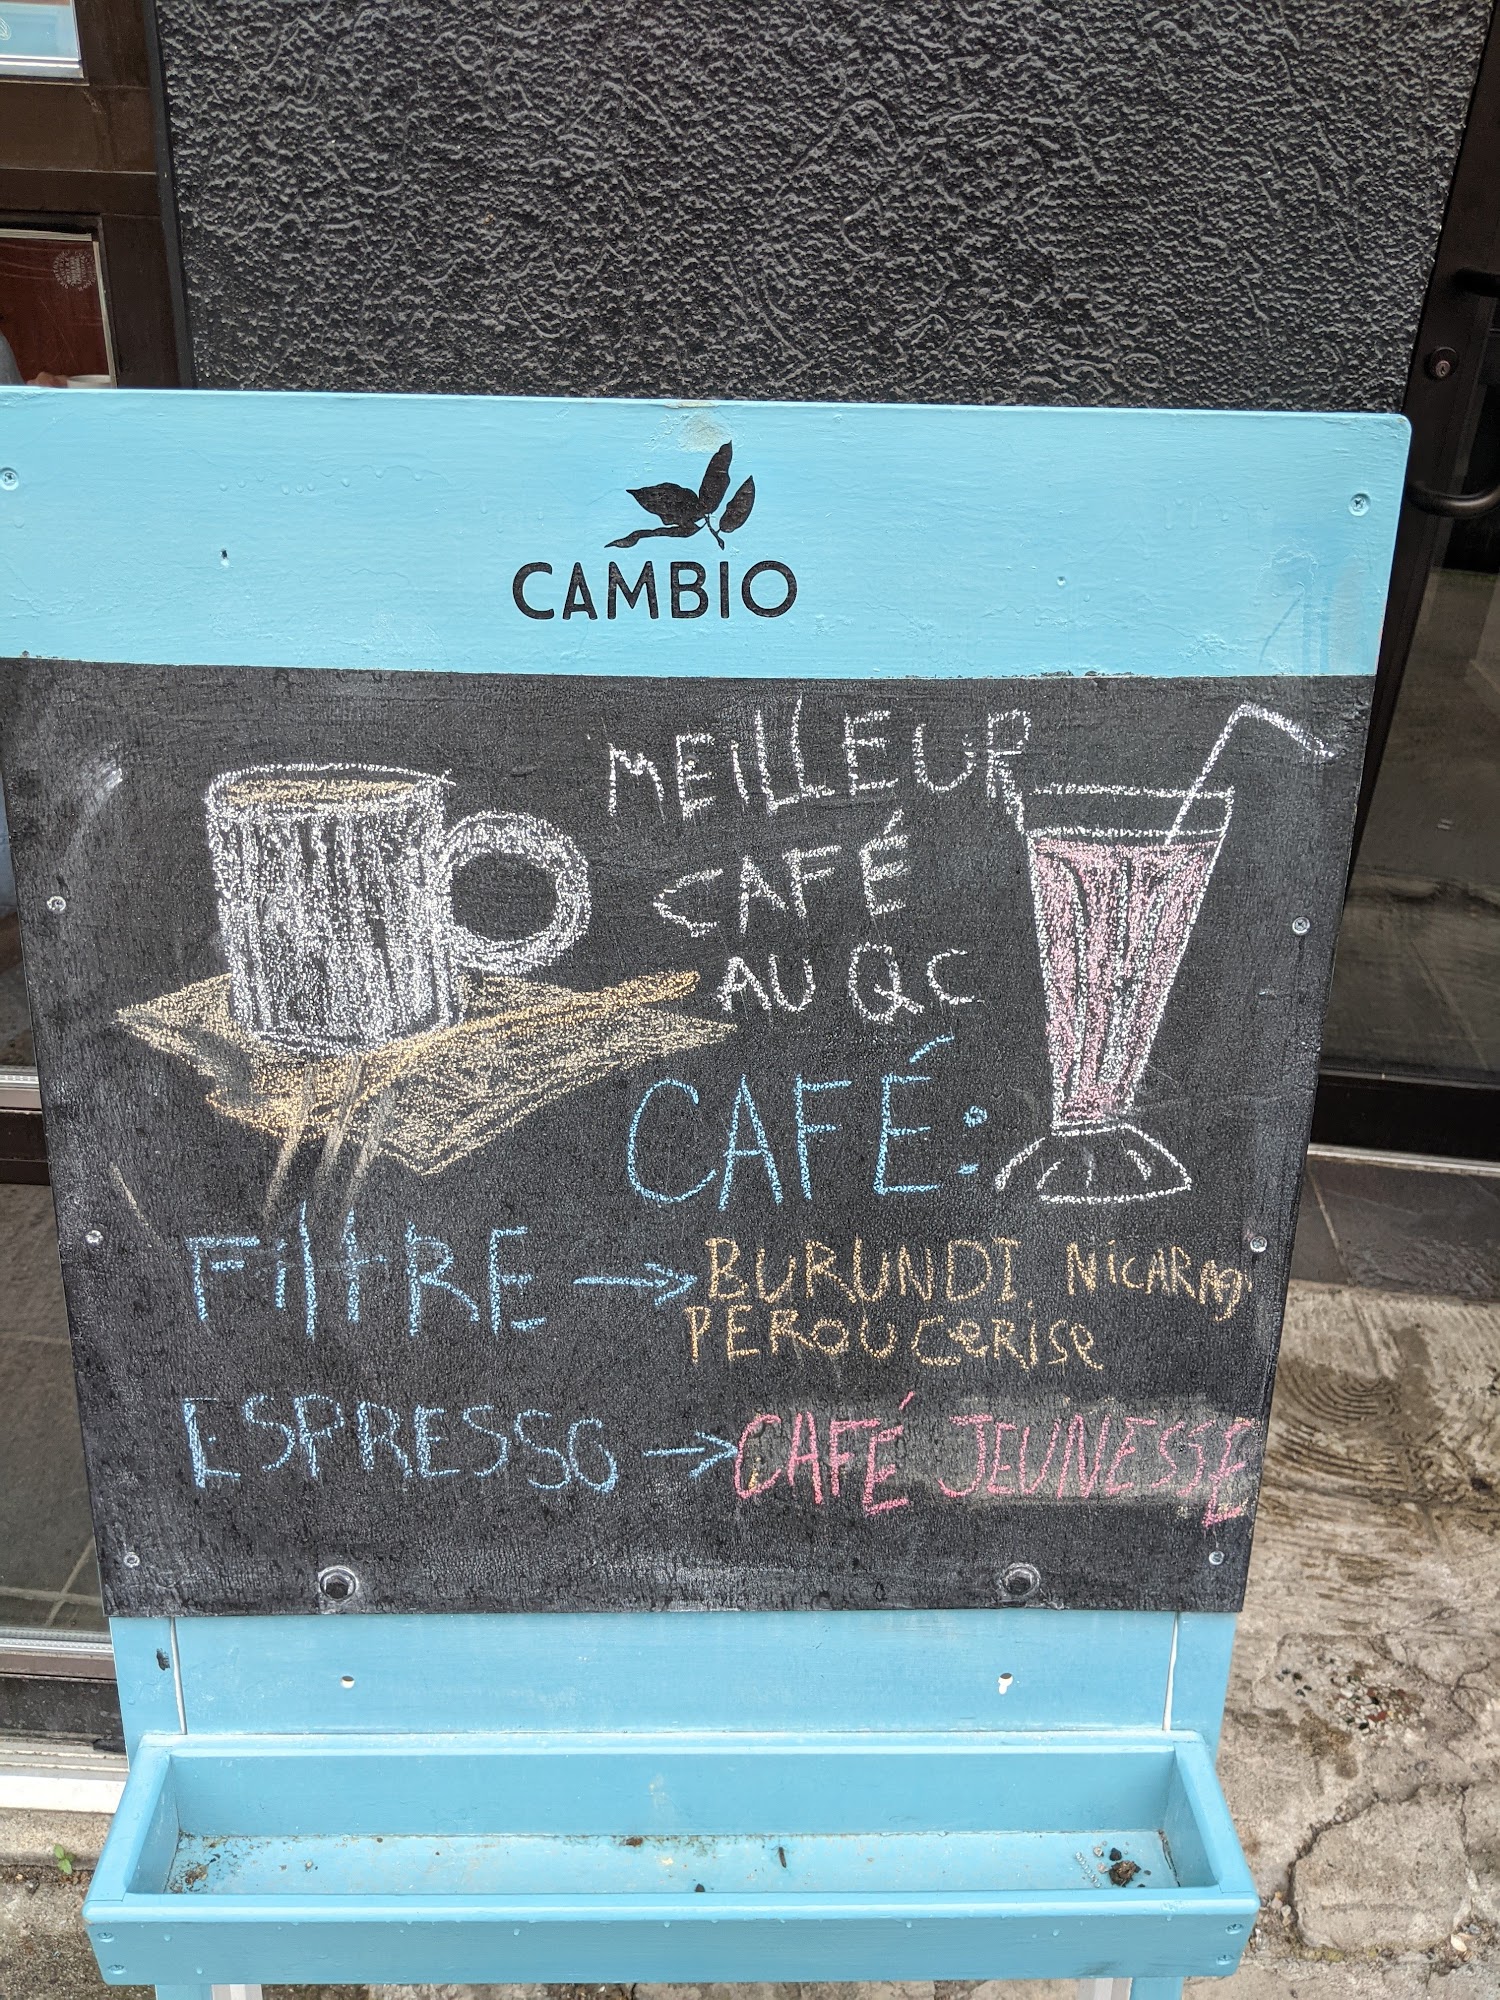 CAMBIO
MEILLEUR
CAFÉ
AU QC
CAFÉ:
FILTRE → BURUNDI NICARAG
PEROU CERISE
ESPRESSO → CAFÉ JEUNESSE